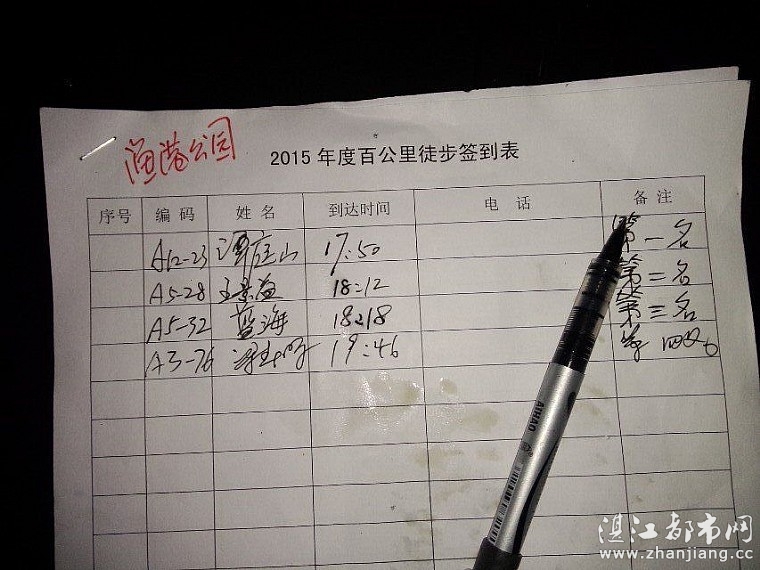 渔港公园
2015 年度百公里徒步签到表
序号 编 码 姓 名 到达时间 电 话 备 注
A12-23 谭庭山 17:50 第一名
A5-28 18:12 第二名
A5-32 蓝海 18:18 第三名
A3-76 19:46 第四名
ATHAO
湛江都市网
www.zhanjiang.cc